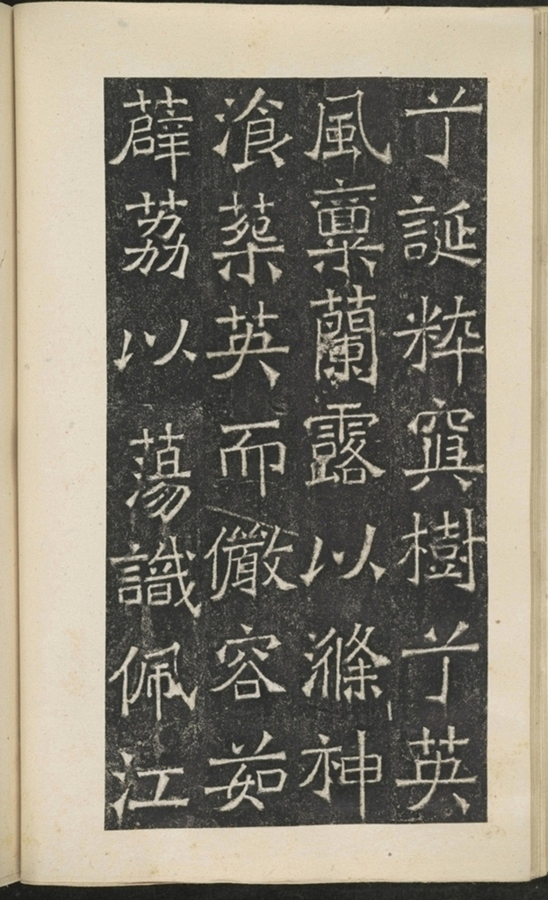 亍誕粹寘樹亍英
風稟蘭露以滌神
湌蘂英而儼容茹
薜荔以蕩識佩江